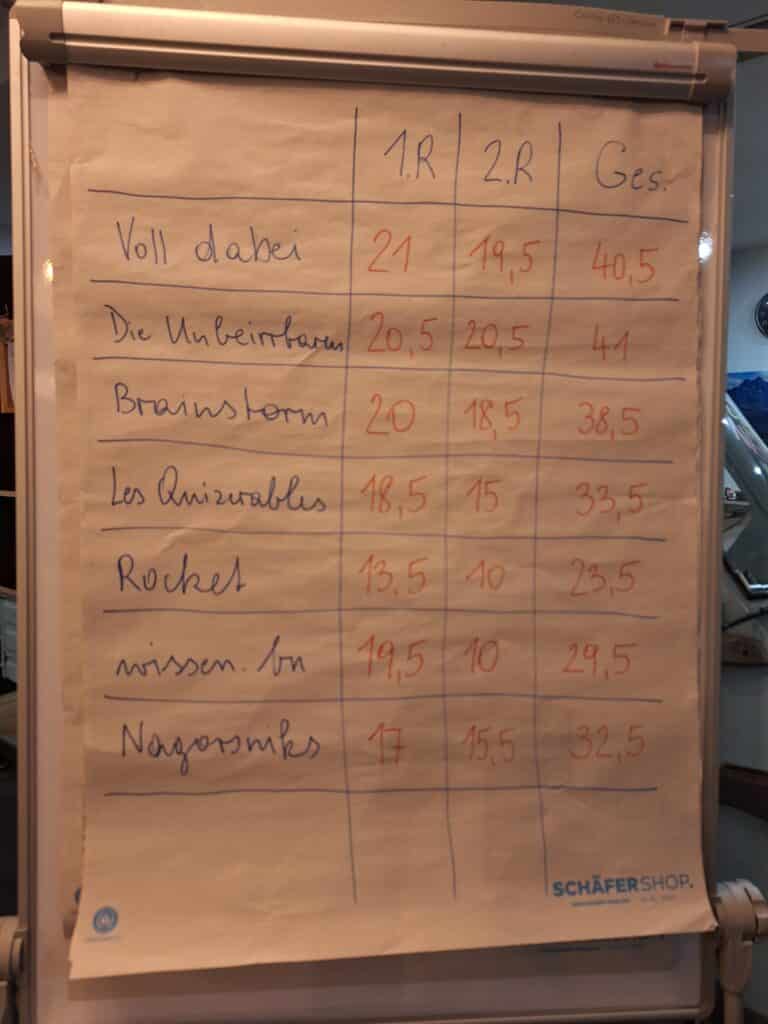 1.R 2.R Ges.
Voll dabei 21 19,5 40,5
Die Unbeirrbaren 20,5 20,5 41
Brainstorm 20 18,5 38,5
Les Quizerables 18,5 15 33,5
Rocket 13,5 10 23,5
wissen.bn 19,5 10 29,5
Nagorsniks 17 15,5 32,5
SCHÄFER SHOP.